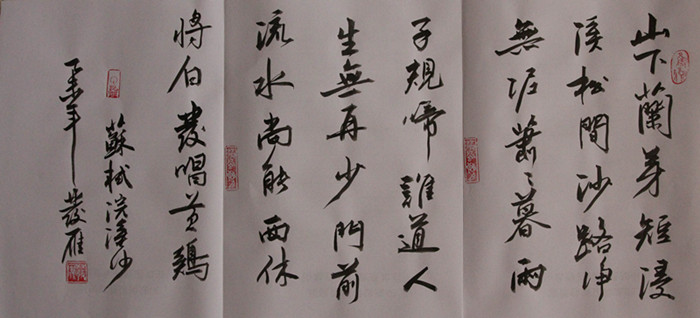 山下蘭芽短浸
溪松間沙路净
無泥蕭〻暮雨
子規啼誰道人
生無再少門前
流水尚能西休
將白發唱黄鷄
蘇軾浣溪沙
年發雁